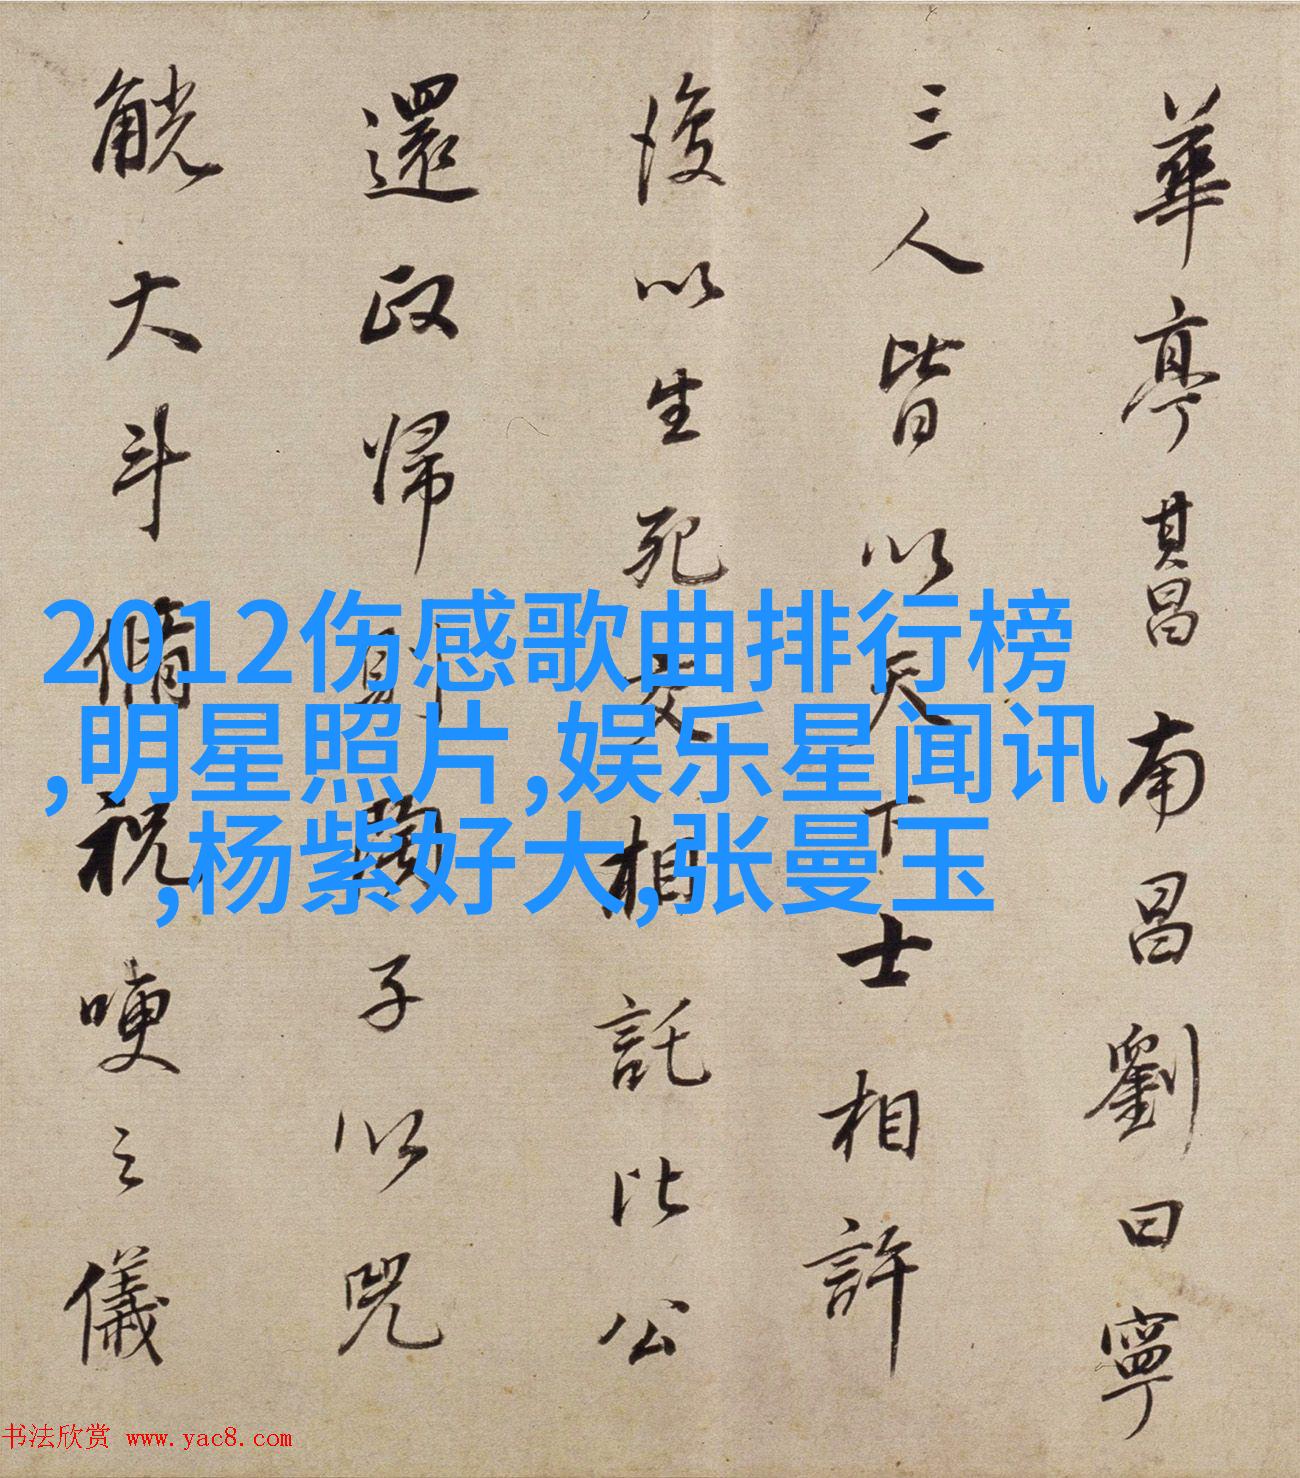 華亭其昌南昌劉曰寧
三人皆以天下士相許
後以生死交相託比公
還政歸則陶子以兕
觥大斗脩祝哽之儀
2012伤感歌曲排行榜
,明星照片,娱乐星闻讯
,杨紫好大,张曼玉
书法欣赏 www.yac8.com